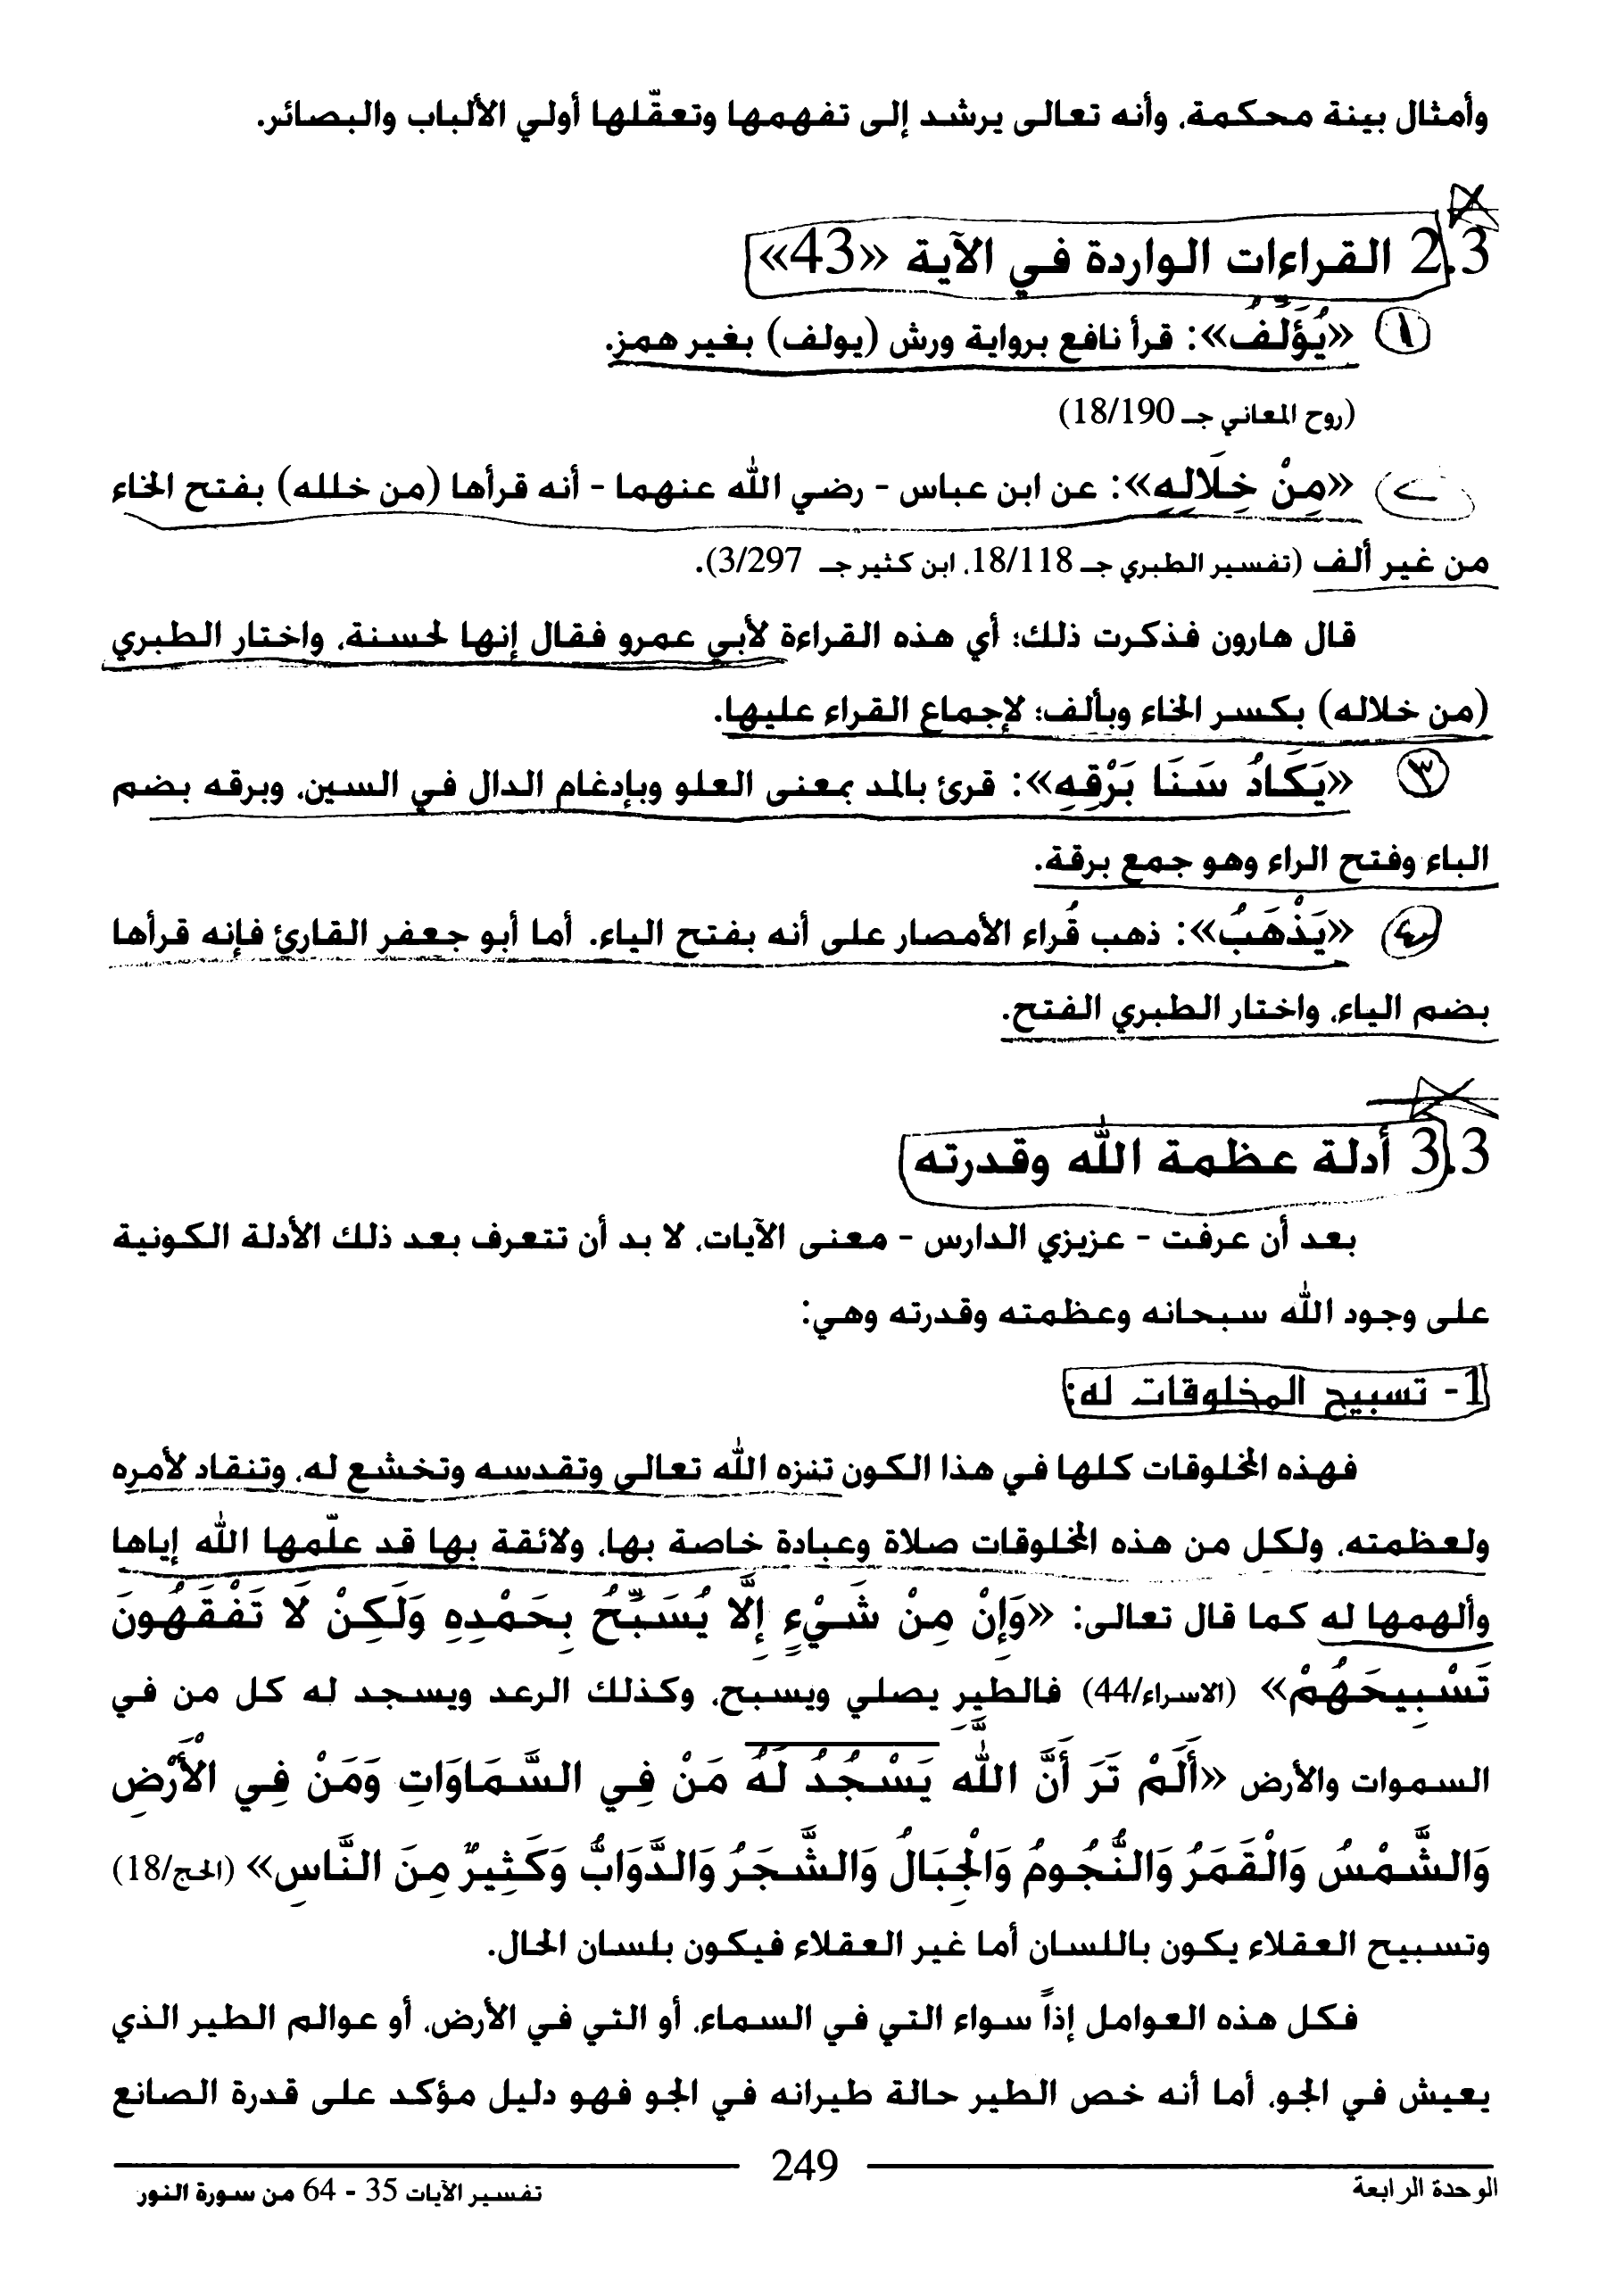 وأمثال بينة محكمة، وأنه تعالى يرشد إلى تفهمها وتعقّلها أولي الألباب والبصائر.
2.3 القراءات الواردة في الآية «43»
١ «يُؤَلِّفُ»: قرأ نافع برواية ورش (يولف) بغير همز.
(روح المعاني جـ 18/190)
٢ «مِنْ خِلَالِهِ»: عن ابن عباس - رضي الله عنهما - أنه قرأها (من خلله) بفتح الخاء
من غير ألف (تفسير الطبري جـ 18/118، ابن كثير جـ 3/297).
قال هارون فذكرت ذلك؛ أي هذه القراءة لأبي عمرو فقال إنها لحسنة، واختار الطبري
(من خلاله) بكسر الخاء وبألف؛ لإجماع القراء عليها.
٣ «يَكَادُ سَنَا بَرْقِهِ»: قرئ بالمد بمعنى العلو وبإدغام الدال في السين، وبرقه بضم
الباء وفتح الراء وهو جمع برقة.
٤ «يَذْهَبُ»: ذهب قُراء الأمصار على أنه بفتح الياء. أما أبو جعفر القارئ فإنه قرأها
بضم الياء، واختار الطبري الفتح.
3.3 أدلة عظمة الله وقدرته
بعد أن عرفت - عزيزي الدارس - معنى الآيات، لا بد أن تتعرف بعد ذلك الأدلة الكونية
على وجود الله سبحانه وعظمته وقدرته وهي:
1- تسبيح المخلوقات له:
فهذه المخلوقات كلها في هذا الكون تنزه الله تعالى وتقدسه وتخشع له، وتنقاد لأمره
ولعظمته، ولكل من هذه المخلوقات صلاة وعبادة خاصة بها، ولائقة بها قد علّمها الله إياها
وألهمها له كما قال تعالى: «وَإِنْ مِنْ شَيْءٍ إِلَّا يُسَبِّحُ بِحَمْدِهِ وَلَكِنْ لَا تَفْقَهُونَ
تَسْبِيحَهُمْ» (الاسراء/44) فالطير يصلي ويسبح، وكذلك الرعد ويسجد له كل من في
السموات والأرض «أَلَمْ تَرَ أَنَّ اللَّهَ يَسْجُدُ لَهُ مَنْ فِي السَّمَاوَاتِ وَمَنْ فِي الْأَرْضِ
وَالشَّمْسُ وَالْقَمَرُ وَالنُّجُومُ وَالْجِبَالُ وَالشَّجَرُ وَالدَّوَابُّ وَكَثِيرٌ مِنَ النَّاسِ» (الحج/18)
وتسبيح العقلاء يكون باللسان أما غير العقلاء فيكون بلسان الحال.
فكل هذه العوامل إذاً سواء التي في السماء، أو التي في الأرض، أو عوالم الطير الذي
يعيش في الجو، أما أنه خص الطير حالة طيرانه في الجو فهو دليل مؤكد على قدرة الصانع
249
الوحدة الرابعة
تفسير الآيات 35 - 64 من سورة النور